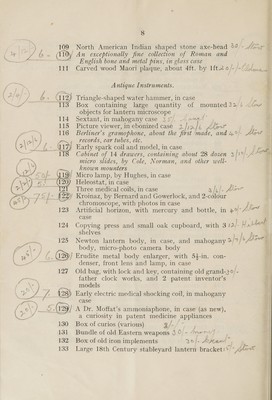 8
109 North American Indian shaped stone axe-head
110 An exceptionally fine collection of Roman and
English bone and metal pins, in glass case
111 Carved wood Maori plaque, about 4ft. by 1ft.
Antique Instruments.
112 Triangle-shaped water hammer, in case
113 Box containing large quantity of mounted
objects for lantern microscope
114 Sextant, in mahogany case
115 Picture viewer, in ebonized case
116 Berliner's gramophone, about the first made, and
records, ear tubes, etc.
117 Early spark coil and model, in case
118 Cabinet of 14 drawers, containing about 28 dozen
micro slides, by Cole, Norman, and other well-
known mounters
119 Micro lamp, by Hughes, in case
120 Heleostat, in case
121 Three medical coils, in case
122 Kromaz, by Bernard and Gowerlock, and 2-colour
chromoscope, with photos in case
123 Artificial horizon, with mercury and bottle, in
case
124 Copying press and small oak cupboard, with 3
shelves
125 Newton lantern body, in case, and mahogany
body, micro-photo camera body
126 Erudite metal body enlarger, with 5½-in. con-
denser, front lens and lamp, in case
127 Old bag, with lock and key, containing old grand-
father clock works, and 2 patent inventor's
models
128 Early electric medical shocking coil, in mahogany
case
129 A Dr. Moffat's ammoniphone, in case (as new),
a curiosity in patent medicine appliances
130 Box of curios (various)
131 Bundle of old Eastern weapons
132 Box of old iron implements
133 Large 18th Century stableyard lantern bracket